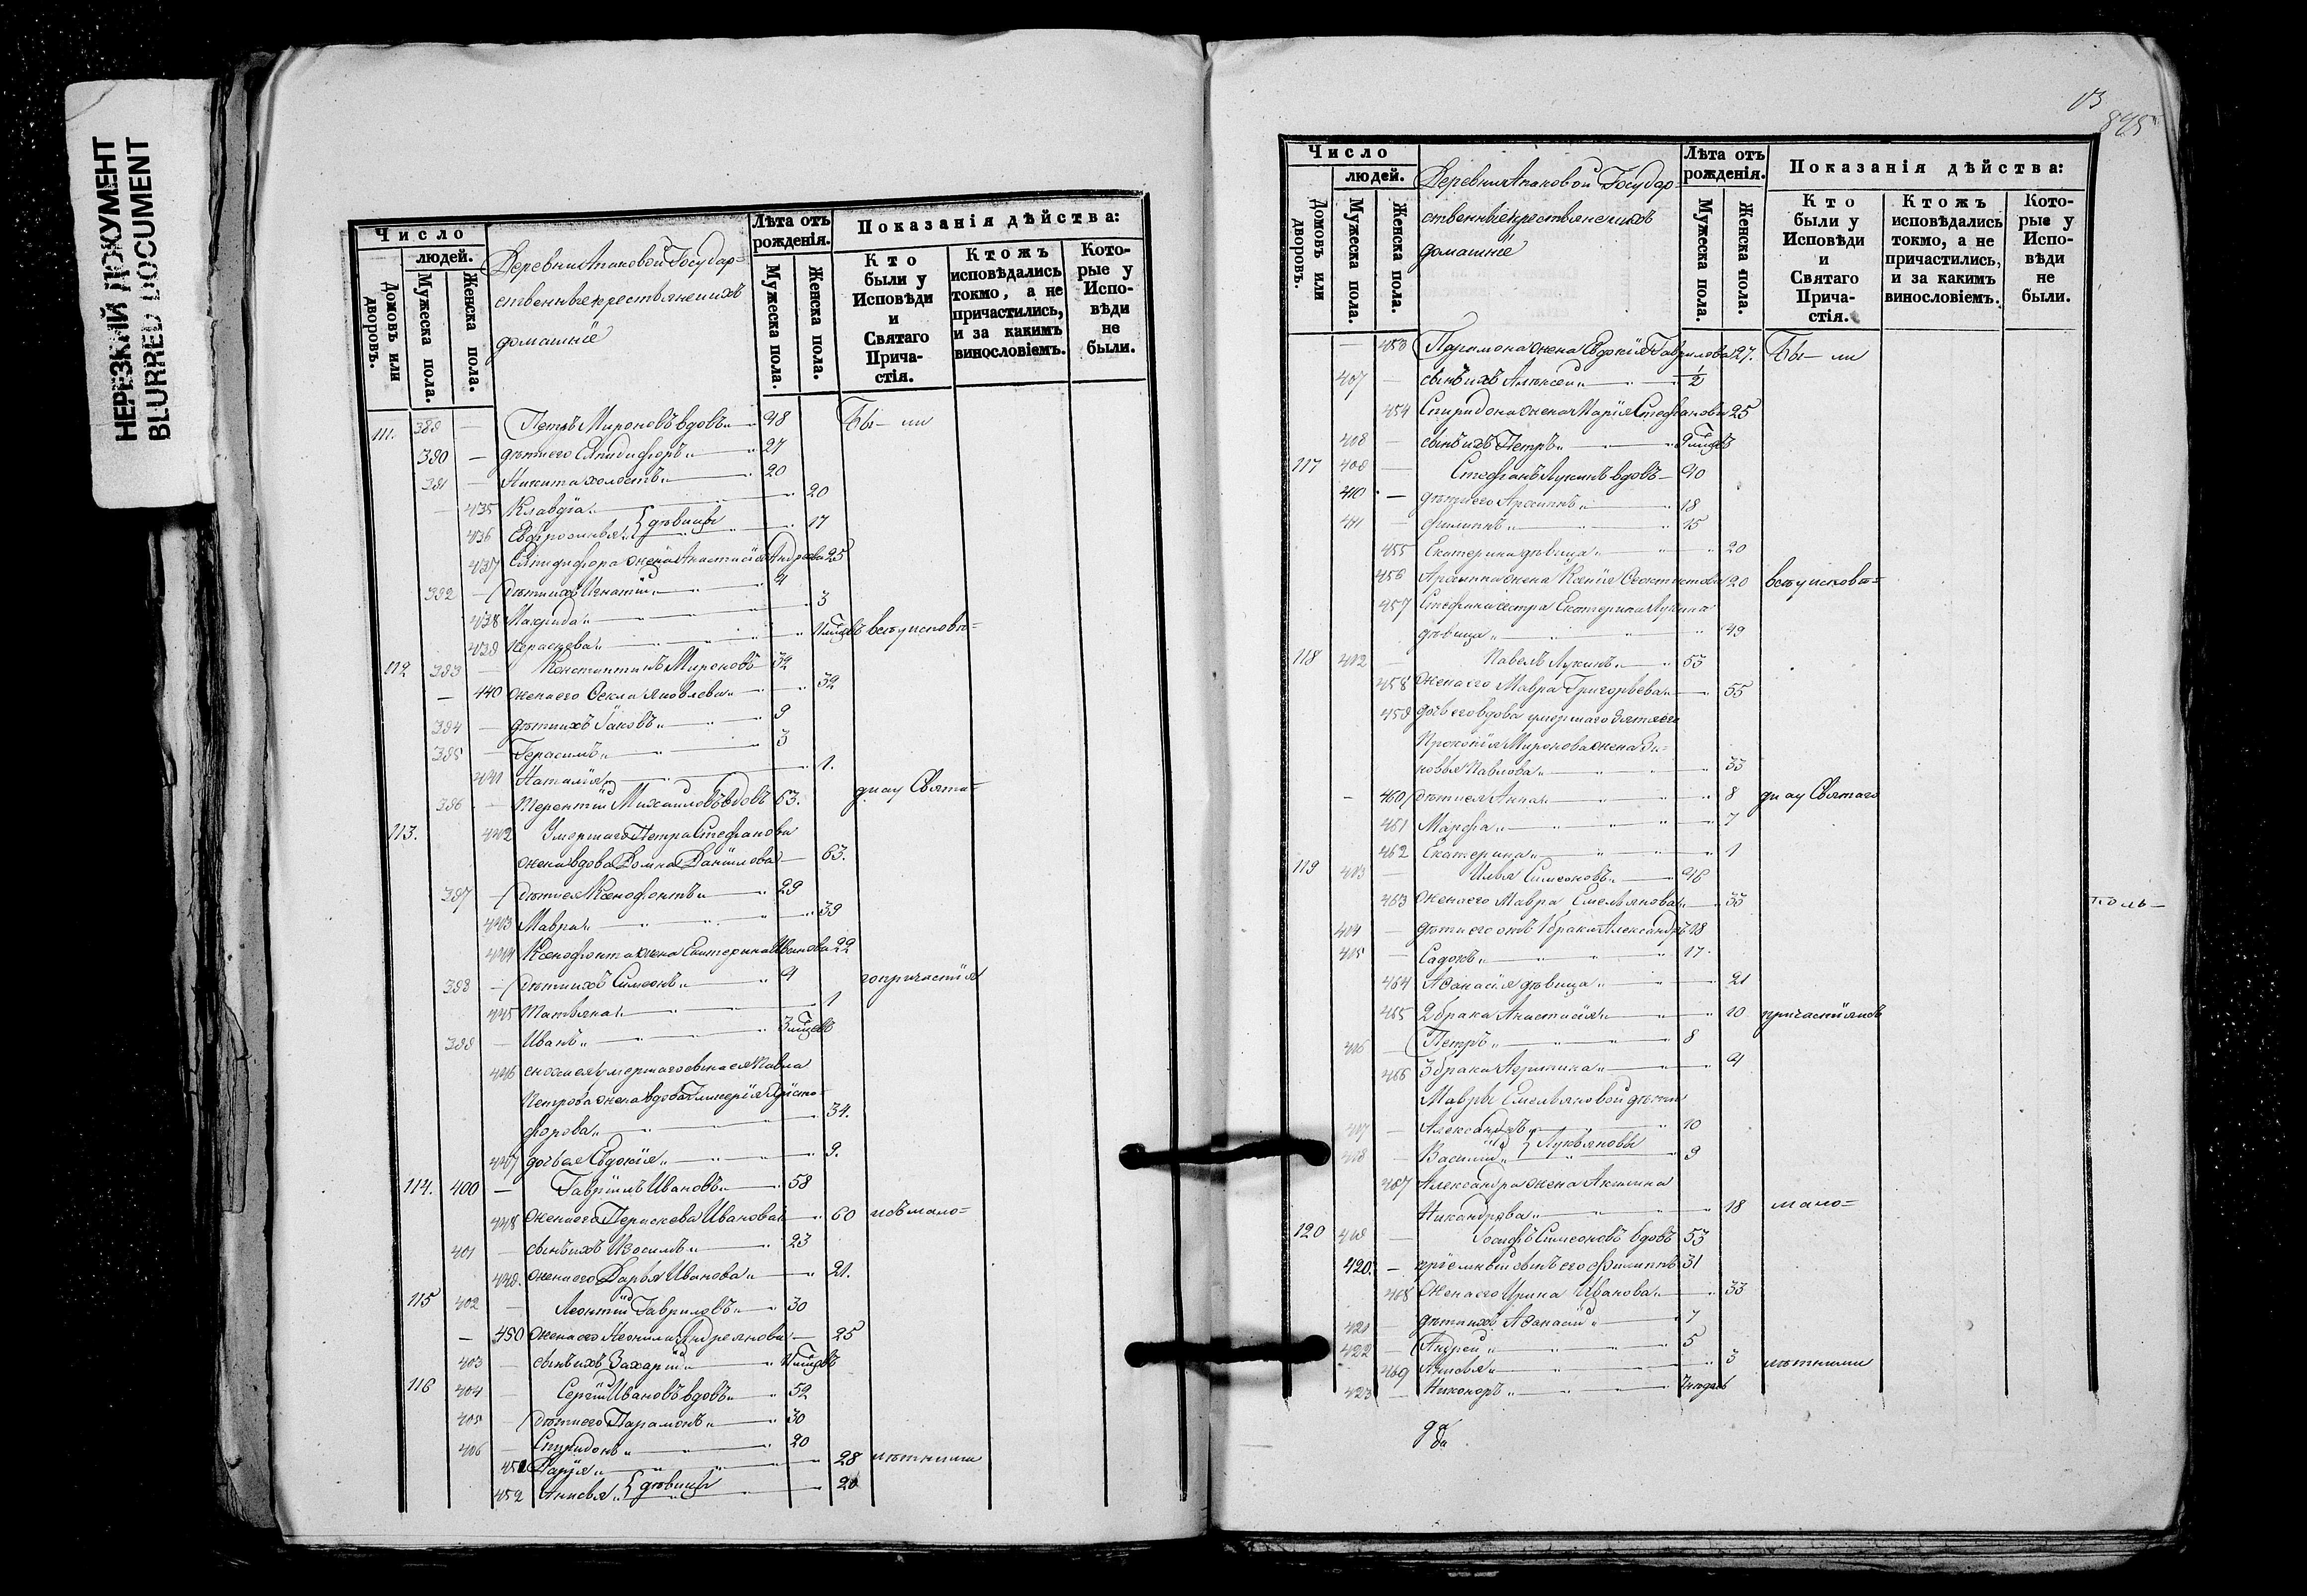 НЕРЕЗКИЙ ДОКУМЕНТ
BLURRED DOCUMENT
Число
людей.
Домовъ или дворовъ.
Мужеска пола.
Женска пола.
Деревни Апаковой Государ-
ственные крестьяне и ихъ
домашніе
Лѣта отъ рожденія.
Мужеска пола.
Женска пола.
Показанія дѣйства:
Кто были у Исповѣди и Святаго Прича-стія.
Ктожъ исповѣдались токмо, а не причастились, и за какимъ винословіемъ.
Кото-рые у Испо-вѣди не были.
111. 389 — Петръ Мироновъ вдовъ 48 Бы- ли
390 — дѣти его Епидифоръ 27
391 — Никита холостъ 20
— 435 Клавдія 20
436 Евфросинья } дѣвицы 17
437 Епидифора жена Анастасія Андреева 25
392 — Дѣти ихъ Игнатій 4
438 Макрида 3
439 Параскева всѣ у исповѣ=
112 393 — Константинъ Мироновъ 32
— 440 жена его Өекла Яковлева 32
394 — дѣти ихъ Іаковъ 9
395 — Герасимъ 3
441 Наталія 1.
396 — Терентій Михайловъ вдовъ 63. ди и у Свята=
113. 442 Умершаго Петра Стефанова
жена вдова Домна Даніилова 63.
397 — Дѣти ея Ксенофонтъ 29
443 Мавра 39
444 Ксенофонта жена Екатерина Иванова 22
398 — Дѣти ихъ Симеонъ 4 го причастія
445 Татьяна 1
399 — Иванъ 3 мѣсцвъ
446 сноха ея умершаго сына ея Павла
Петрова жена вдова Гликерія Христо-
форова 34.
447 дочь ея Евдокія 9.
114. 400 — Гавріилъ Ивановъ 58
448 жена его Параскева Иванова 60 исъ мало=
401 — сынъ ихъ Изосимъ 23
449. жена его Дарья Иванова 21.
115 402 — Леонтій Гавриловъ 30
— 450 жена его Неонила Андреянова 25
403 — сынъ ихъ Захарій
116 404 — Сергій Ивановъ вдовъ 52
405 — Дѣти его Парамонъ 30
406 — Спиридонъ 20
451 Дарія 28 лѣтними
452 Анисья } дѣвицы 20
13
895
Число
людей.
Домовъ или дворовъ.
Мужеска пола.
Женска пола.
Деревни Апаковой Государ-
ственные крестьяне и ихъ
домашніе
Лѣта отъ рожденія.
Мужеска пола.
Женска пола.
Показанія дѣйства:
Кто были у Исповѣди и Святаго Прича-стія.
Ктожъ исповѣдались токмо, а не причастились, и за какимъ винословіемъ.
Кото-рые у Испо-вѣди не были.
— 453 Парамона жена Евдокія Гаврилова 27. Бы- ли
407 — сынъ ихъ Алексѣй 1/2
454 Спиридона жена Марія Стефанова 25
408 — сынъ ихъ Петръ 9 мѣсцвъ
117 409 — Стефанъ Лукинъ вдовъ 40
410 — дѣти его Архипъ 18
411 — Филиппъ 15
455 Екатерина дѣвица 20
456 Архипа жена Ксенія Өеоктистова 20 всѣ у исповѣ=
457 Стефана сестра Екатерина Лукина
дѣвица 49
118 412 — Павелъ Лукинъ 53
458 жена его Мавра Григорьева 55
459 дочь его вдова умершаго зятя его
Прокопія Миронова жена Зи-
новья Павлова 33
— 460 Дѣти ея Анна 8 ди и у Святаго
461 Марфа 7
462 Екатерина 1
119 413 — Илья Симеоновъ 46
463 жена его Мавра Емельянова 33
414 — дѣти его отъ 1 брака Александръ 18
толь-
415 — Садокъ 17.
464 Аѳанасія дѣвица 21
465 2 брака Анастасія 10 причастіялисъ
416 — Петръ 8
466 3 брака Агрипина 4
Мавры Емельяновой дѣти
417 — Александръ 10
418 — Василій } Лукьяновы 9
467 Александра жена Акилина
Никандрова 18 мало=
120 419 — Іосифъ Симеоновъ вдовъ 53
420. — пріемный сынъ его Филиппъ 31
468 жена его Ирина Иванова 33
421 — дѣти ихъ Аѳанасій 7
422 — Андрей 5
469 Анисья 3 лѣтними
423 — Никоноръ